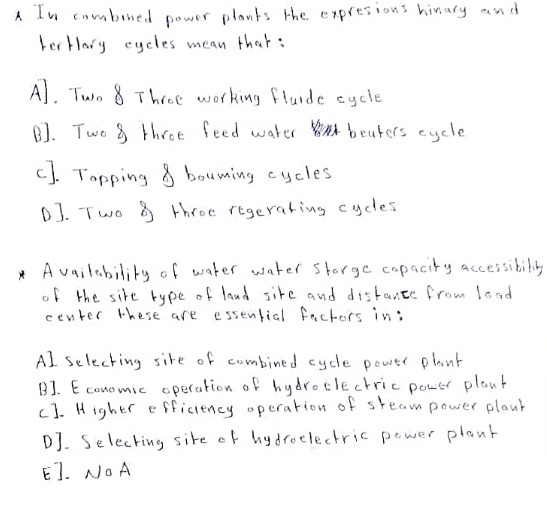 * In combined power plants the expresions binary and
tertiary cycles mean that:
A]. Two & Three working fluide cycle
B]. Two & three feed water beuters cycle
C]. Topping & bouming cycles
D]. Two & throe regerating cycles
* Availability of water water storge capacity accessibility
of the site type of land site and distance from load
center these are essential factors in:
A] Selecting site of combined cycle power plant
B]. Economic operation of hydroelectric power plant
C]. Higher efficiency operation of steam power plant
D]. Selecting site of hydroelectric power plant
E]. NoA